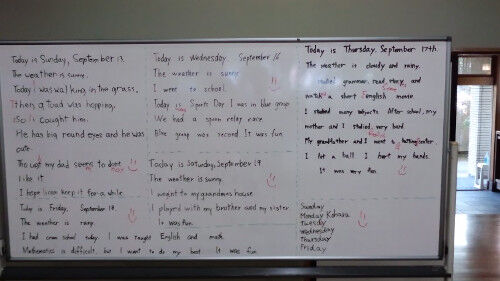 Today is Sunday, September 13
The weather is sunny.
Today I was walking in the grass,
Then a toad was hopping,
So I caught him.
He has big round eyes and he was
cute.
my dad seems to
like it.
I hope I can keep it for a while.
Today is Friday, September 18
The weather is rainy.
I had cram school today. I was taught English and math.
Mathematics is difficult, but I want to do my best. It was fun.
Today is Wednesday September 16
The weather is sunny
I went to school.
Today is Sports Day I was in blue group
We had a spoon relay race
Blue group was second It was fun.
Today is Saturday, September 19.
The weather is sunny.
I went to my grandmas house
I played with my brother and my sister
It was fun.
Today is Thursday. September 17th.
The weather is cloudy and rainy.
I studied grammar, read story, and
watch a short English movie.
I studied many subjects After school, my
mother and I studied very hard
My grandfather and I went to batting center.
I hit a ball I hurt my hands.
It was very fun
Sunday
Monday
Tuesday
Wednesday
Thursday
Friday